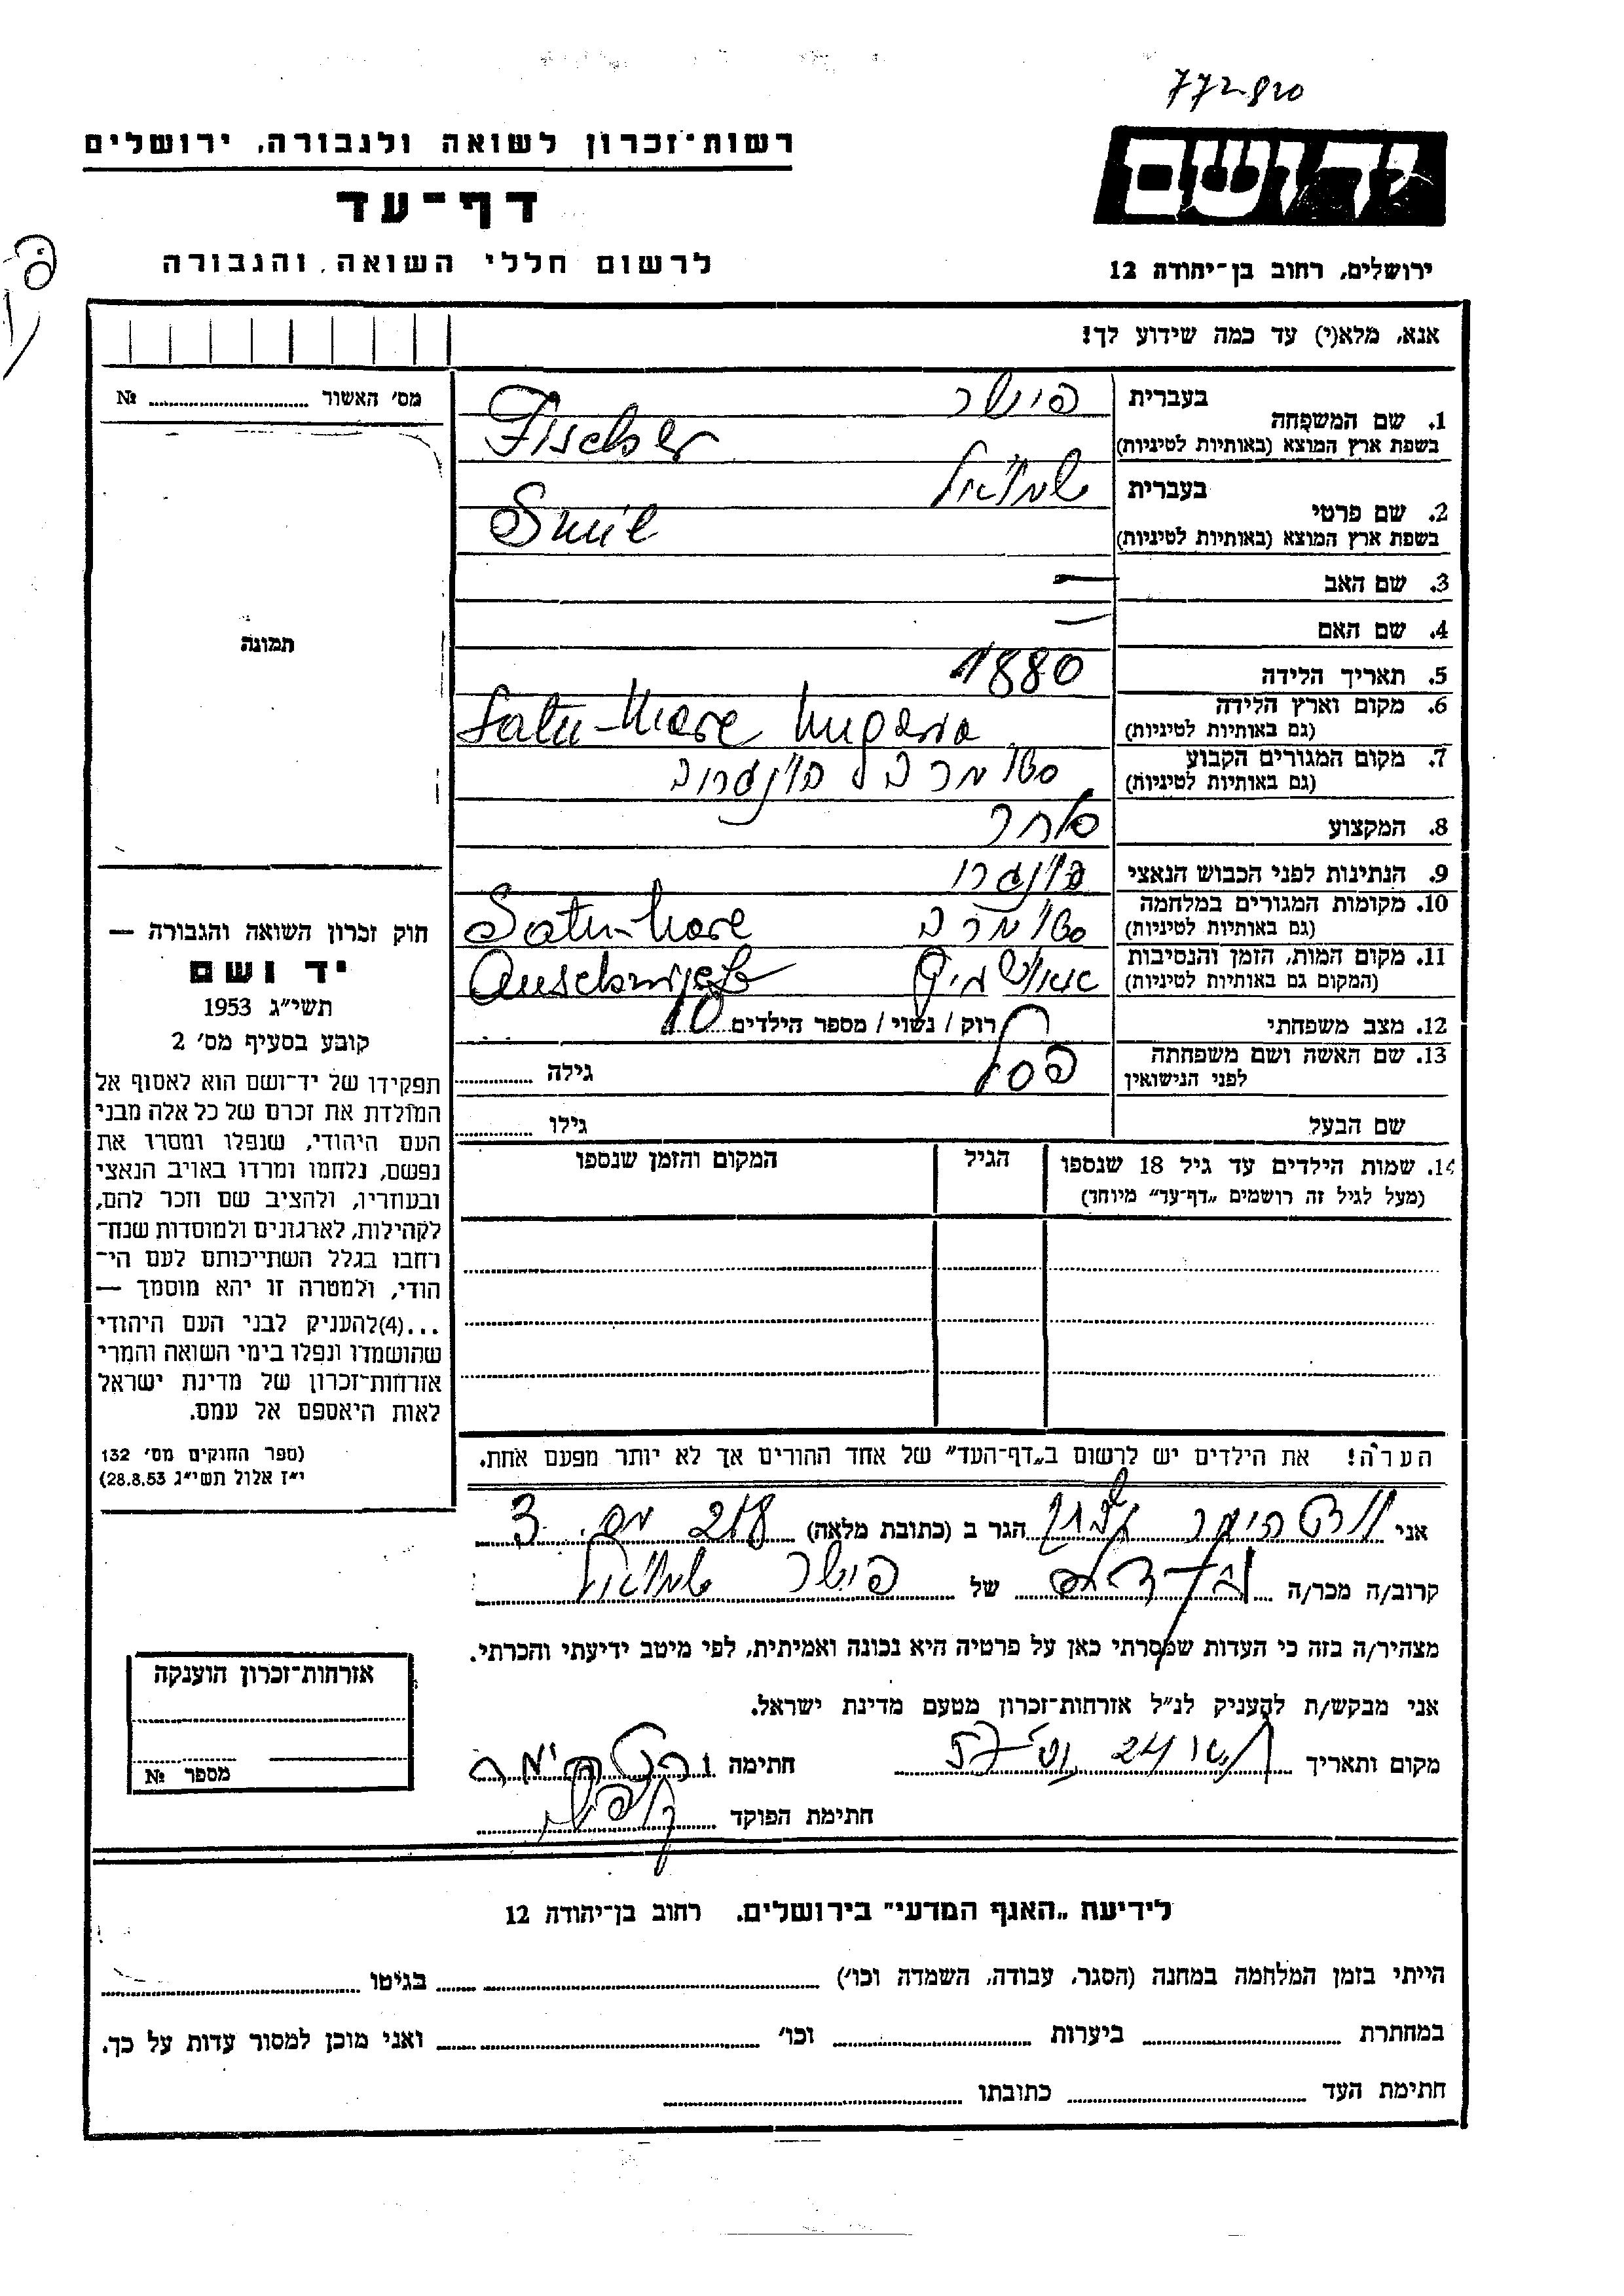 772820
רשות־זכרון לשואה ולגבורה, ירושלים
דף־עד
לרשום חללי השואה והגבורה
ידושם
ירושלים, רחוב בן־יהודה 12
אנא, מלא(י) עד כמה שידוע לך!
מס' האשור № ........
1. שם המשפחה
בעברית פישר
בשפת ארץ המוצא (באותיות לטיניות) Fischer
2. שם פרטי
בעברית שמואל
בשפת ארץ המוצא (באותיות לטיניות) Smil
3. שם האב —
4. שם האם —
5. תאריך הלידה 1880
6. מקום וארץ הלידה
(גם באותיות לטיניות) Satu-Mare
7. מקום המגורים הקבוע
(גם באותיות לטיניות)
8. המקצוע סוחר
9. הנתינות לפני הכבוש הנאצי
10. מקומות המגורים במלחמה
(גם באותיות לטיניות) Satu-Mare
11. מקום המות, הזמן והנסיבות
(המקום גם באותיות לטיניות)
12. מצב משפחתי רוק / נשוי / מספר הילדים 10
13. שם האשה ושם משפחתה
לפני הנישואין פסל גילה ........
שם הבעל גילו ........
14. שמות הילדים עד גיל 18 שנספו
(מעל לגיל זה רושמים „דף־עד" מיוחד)
הגיל
המקום והזמן שנספו
הערה! את הילדים יש לרשום ב„דף־העד" של אחד ההורים אך לא יותר מפעם אחת.
תמונה
חוק זכרון השואה והגבורה —
יד ושם
תשי"ג 1953
קובע בסעיף מס' 2
תפקידו של יד־ושם הוא לאסוף אל
המולדת את זכרם של כל אלה מבני
העם היהודי, שנפלו ומסרו את
נפשם, נלחמו ומרדו באויב הנאצי
ובעוזריו, ולהציב שם וזכר להם,
לקהילות, לארגונים ולמוסדות שנח־
רחבו בגלל השתייכותם לעם הי־
הודי, ולמטרה זו יהא מוסמך —
...(4)להעניק לבני העם היהודי
שהושמדו ונפלו בימי השואה והמרי
אזרחות־זכרון של מדינת ישראל
לאות היאספם אל עמם.
(ספר החוקים מס' 132
י"ז אלול תשי"ג 28.8.53)
אני הגר ב (כתובת מלאה)
קרוב/ה מכר/ה של פישר שמואל
מצהיר/ה בזה כי העדות שמסרתי כאן על פרטיה היא נכונה ואמיתית, לפי מיטב ידיעתי והכרתי.
אני מבקש/ת להעניק לנ"ל אזרחות־זכרון מטעם מדינת ישראל.
מקום ותאריך חתימה
חתימת הפוקד
אזרחות־זכרון הוענקה
מספר №
לידיעת „האגף המדעי" בירושלים. רחוב בן־יהודה 12
הייתי בזמן המלחמה במחנה (הסגר, עבודה, השמדה וכו') ........ בגיטו ........
במחתרת ........ ביערות ........ וכו' ........ ואני מוכן למסור עדות על כך.
חתימת העד ........ כתובתו ........